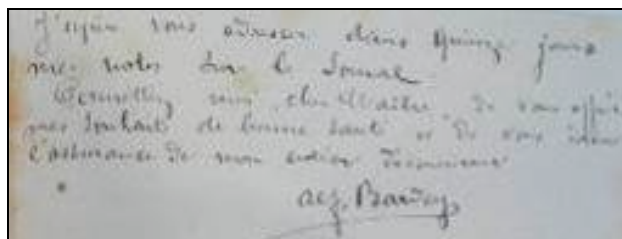 J'espère vous adresser dans quinze jours
mes notes sur le Somal
Permettez moi, cher Maître, de vous offrir
mes souhaits de bonne santé et de vous
l'assurance de mon entier dévouement
Alf. Bardey